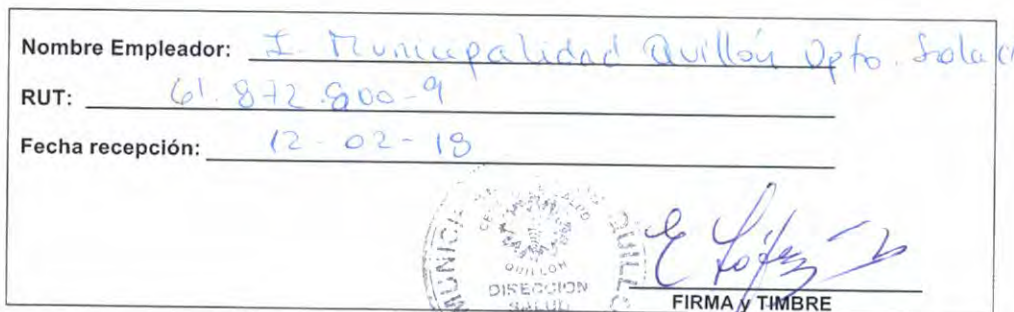 Nombre Empleador: I. Municipalidad Quillón Dpto. Salud
RUT: 61.872.800-9
Fecha recepción: 12-02-18
MUNICI QUILLO
QUILLON
DIRECCION
SALUD
E López
FIRMA y TIMBRE